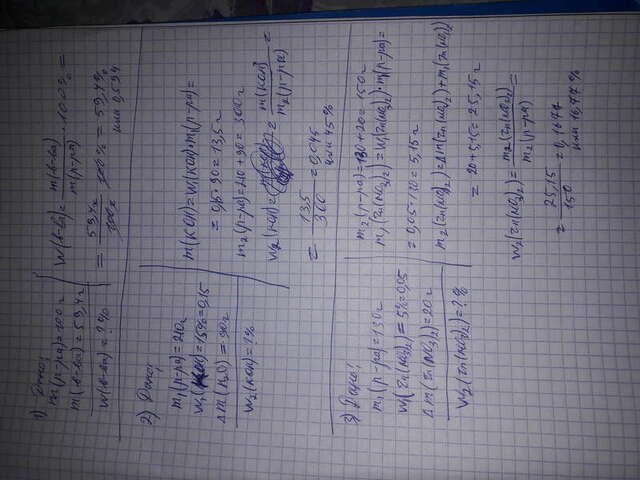 1) Дано:
m(р-ра)=100г
m(в-ва)=59,4г
w(в-ва)=?%
w(в-ва)= m(в-ва)/m(р-ра) · 100% =
= 59,4г/100г · 100% = 59,4%
или 0,594
2) Дано:
m₁(р-ра)=210г
w₁(KOH)=15%=0,15
Δm(H₂O)=90г
w₂(KOH)=?%
m(KOH)=w₁(KOH)·m₁(р-ра)=
= 0,15·90=13,5г
m₂(р-ра)=210+90=300г
w₂(KOH)= = m(KOH)/m₂(р-ра) =
= 13,5/300 = 0,045
или 45%
3) Дано:
m₁(р-ра)=130г
w₁(Zn(NO₃)₂)=5%=0,05
Δm(Zn(NO₃)₂)=20г
w₂(Zn(NO₃)₂)=?%
m₂(р-ра)=130+20=150г
m₁(Zn(NO₃)₂)=w₁(Zn(NO₃)₂)·m₁(р-ра)=
=0,05·130=5,15г
m₂(Zn(NO₃)₂)=Δm(Zn(NO₃)₂)+m₁(Zn(NO₃)₂)
= 20+5,15=25,15г
w₂(Zn(NO₃)₂)= m₂(Zn(NO₃)₂)/m₂(р-ра) =
= 25,15/150 =0,1677
или 16,77%